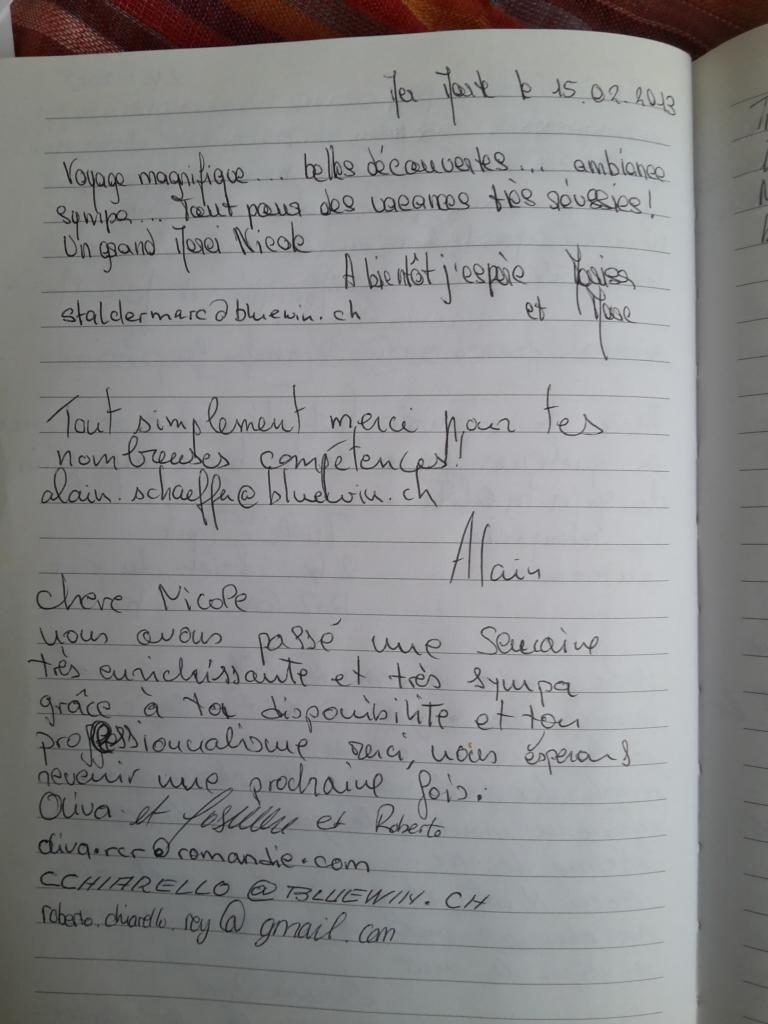 le 15.02.2013
Voyage magnifique... belles découvertes... ambiance
sympa... Tout pour des vacances très réussies!
Un grand Merci Nicole
A bientôt j'espère
staldermarc@bluewin.ch et Marc
Tout simplement merci pour tes
nombreuses compétences!
alain.schaeffer@bluewin.ch
Alain
Chere Nicole
nous avons passé une Semaine
très enrichissante et très sympa
grâce à ta disponibilite et ton
professionnalisme merci, nous éspérons
revenir une prochaine fois.
Oliva et et Roberto
oliva.rcr@romandie.com
CCHIARELLO@BLUEWIN.CH
roberto.chiarello.rey@gmail.com